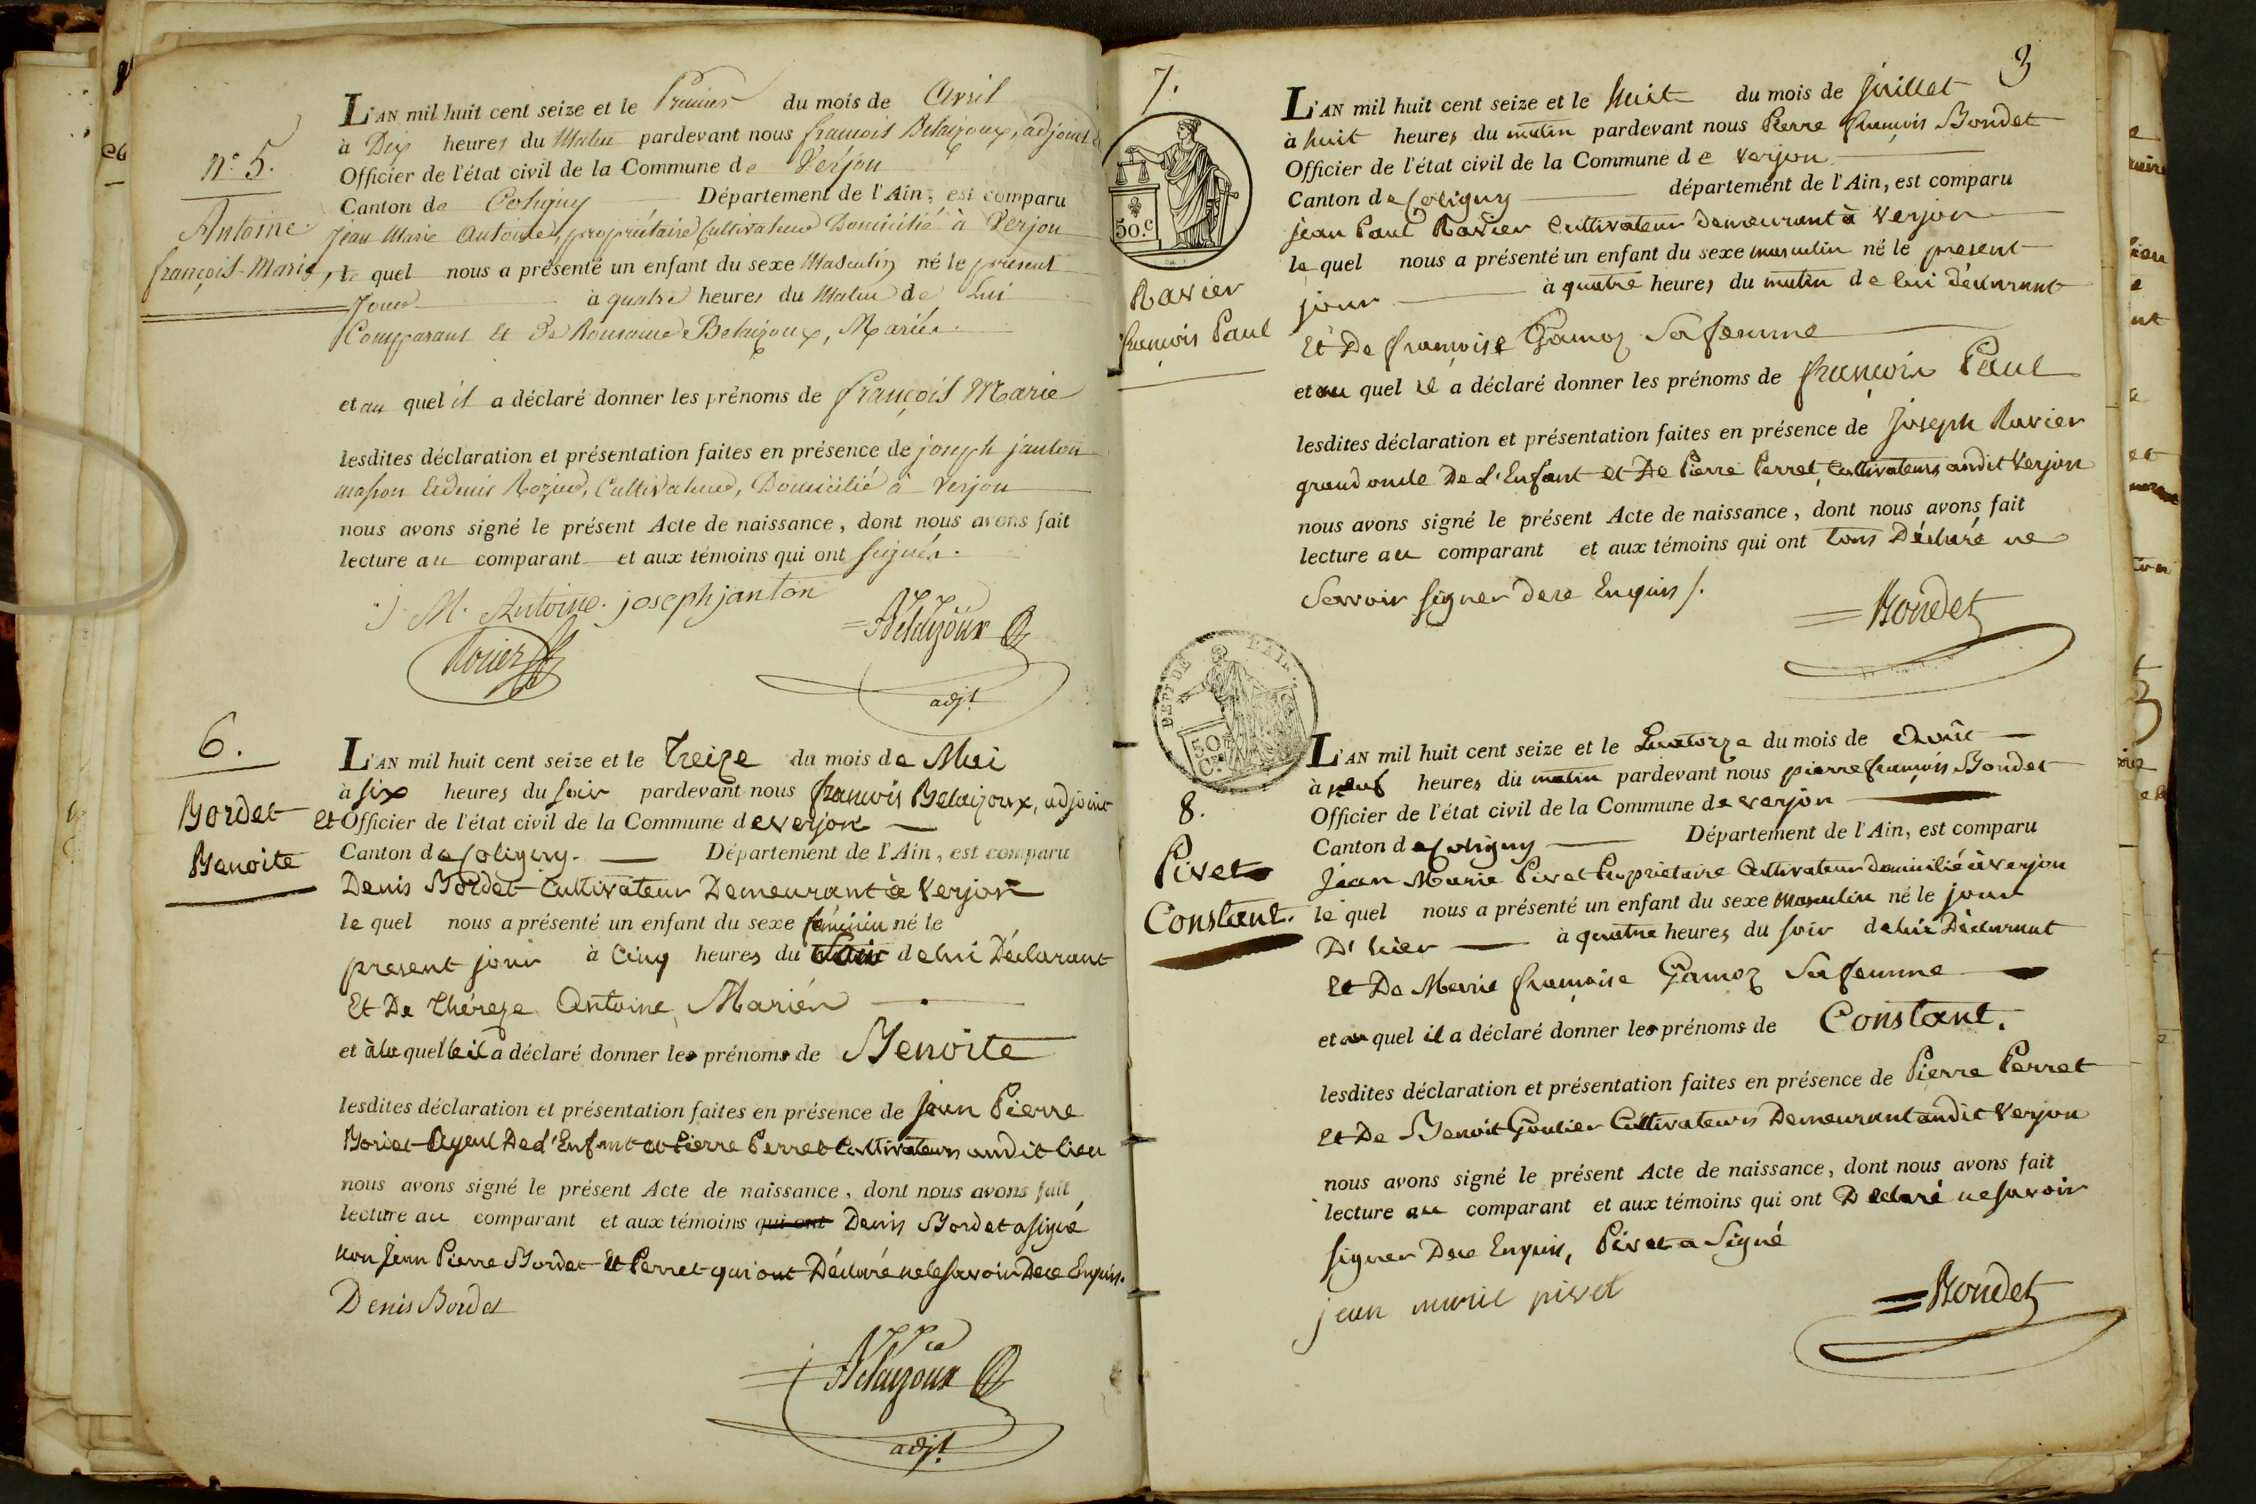 n.° 5.
Antoine
françois-Marie,
L'AN mil huit cent seize et le Premier du mois de Avril
à Dix heures du Matin pardevant nous francois Belaizoux, adjoint
Officier de l'état civil de la Commune de Verjon
Canton de Coligny Département de l'Ain, est comparu
Jean Marie Antoine, propriétaire Cultivateur Domicilié à Verjon
le quel nous a présenté un enfant du sexe Masculin né le présent
Jour à quatre heures du Matin de Lui
Comparant et de Romaine Belaizoux, Mariés.
et au quel il a déclaré donner les prénoms de françois Marie
lesdites déclaration et présentation faites en présence de joseph janton
masson et denis Rozier, Cultivateur, Domicilié à Verjon
nous avons signé le présent Acte de naissance, dont nous avons fait
lecture au comparant et aux témoins qui ont signés.
J M. Antoine. joseph janton
Belaizoux
adjt
6.
Bordet
Benoite
L'AN mil huit cent seize et le Treize du mois de Mai
à six heures du soir pardevant nous francois Belaizoux, adjoint
et Officier de l'état civil de la Commune de verjon
Canton de Coligny. Département de l'Ain, est comparu
Denis Bordet Cultivateur Demeurant à Verjon
le quel nous a présenté un enfant du sexe féminin né le
present jour à Cinq heures du de lui Déclarant
Et De Thérèze Antoine, Mariés
et à la quelle il a déclaré donner les prénoms de Benoite
lesdites déclaration et présentation faites en présence de jean Pierre
Bordet Ayeul De l'Enfant et Pierre Perret Cultivateurs audit lieu
nous avons signé le présent Acte de naissance, dont nous avons fait
lecture au comparant et aux témoins qui ont Denis Bordet a signé
non Jean Pierre Bordet Et Perret qui ont Déclaré ne le savoir De ce Enquis.
Denis Bordet
Belaizoux
adjt
3
7.
50.c
Ravier
francois Paul
L'AN mil huit cent seize et le huit du mois de juillet
à huit heures du matin pardevant nous Pierre françois Bondet
Officier de l'état civil de la Commune de verjon
Canton de Coligny département de l'Ain, est comparu
jean Paul Ravier Cultivateur Demeurant à Verjon
le quel nous a présenté un enfant du sexe masculin né le present
jour à quatre heures du matin de lui déclarant
Et De françoise Gamoz Sa femme
et au quel il a déclaré donner les prénoms de françois Paul
lesdites déclaration et présentation faites en présence de joseph Ravier
grand oncle De l'Enfant et De Pierre Perret, Cultivateurs audit Verjon
nous avons signé le présent Acte de naissance, dont nous avons fait
lecture au comparant et aux témoins qui ont tous Déclaré ne
Savoir signer de ce Enquis /.
Bondet
DEPT DE L'AIN
50 Ces
8.
Pivet
Constant.
L'AN mil huit cent seize et le Quatorze du mois de Août
à neuf heures du matin pardevant nous pierre françois Bondet
Officier de l'état civil de la Commune de verjon
Canton de Coligny Département de l'Ain, est comparu
Jean Marie Pivet Propriétaire Cultivateur domicilié à Verjon
le quel nous a présenté un enfant du sexe Masculin né le jour
D'hier à quatre heures du soir de lui Déclarant
Et De Marie françoise Gamoz Sa femme
et au quel il a déclaré donner les prénoms de Constant.
lesdites déclaration et présentation faites en présence de Pierre Perret
Et De Benoit Goulier Cultivateurs Demeurant audit Verjon
nous avons signé le présent Acte de naissance, dont nous avons fait
lecture au comparant et aux témoins qui ont Déclaré ne savoir
signer De ce Enquis, Pivet a Signé
jean marie pivet
Bondet